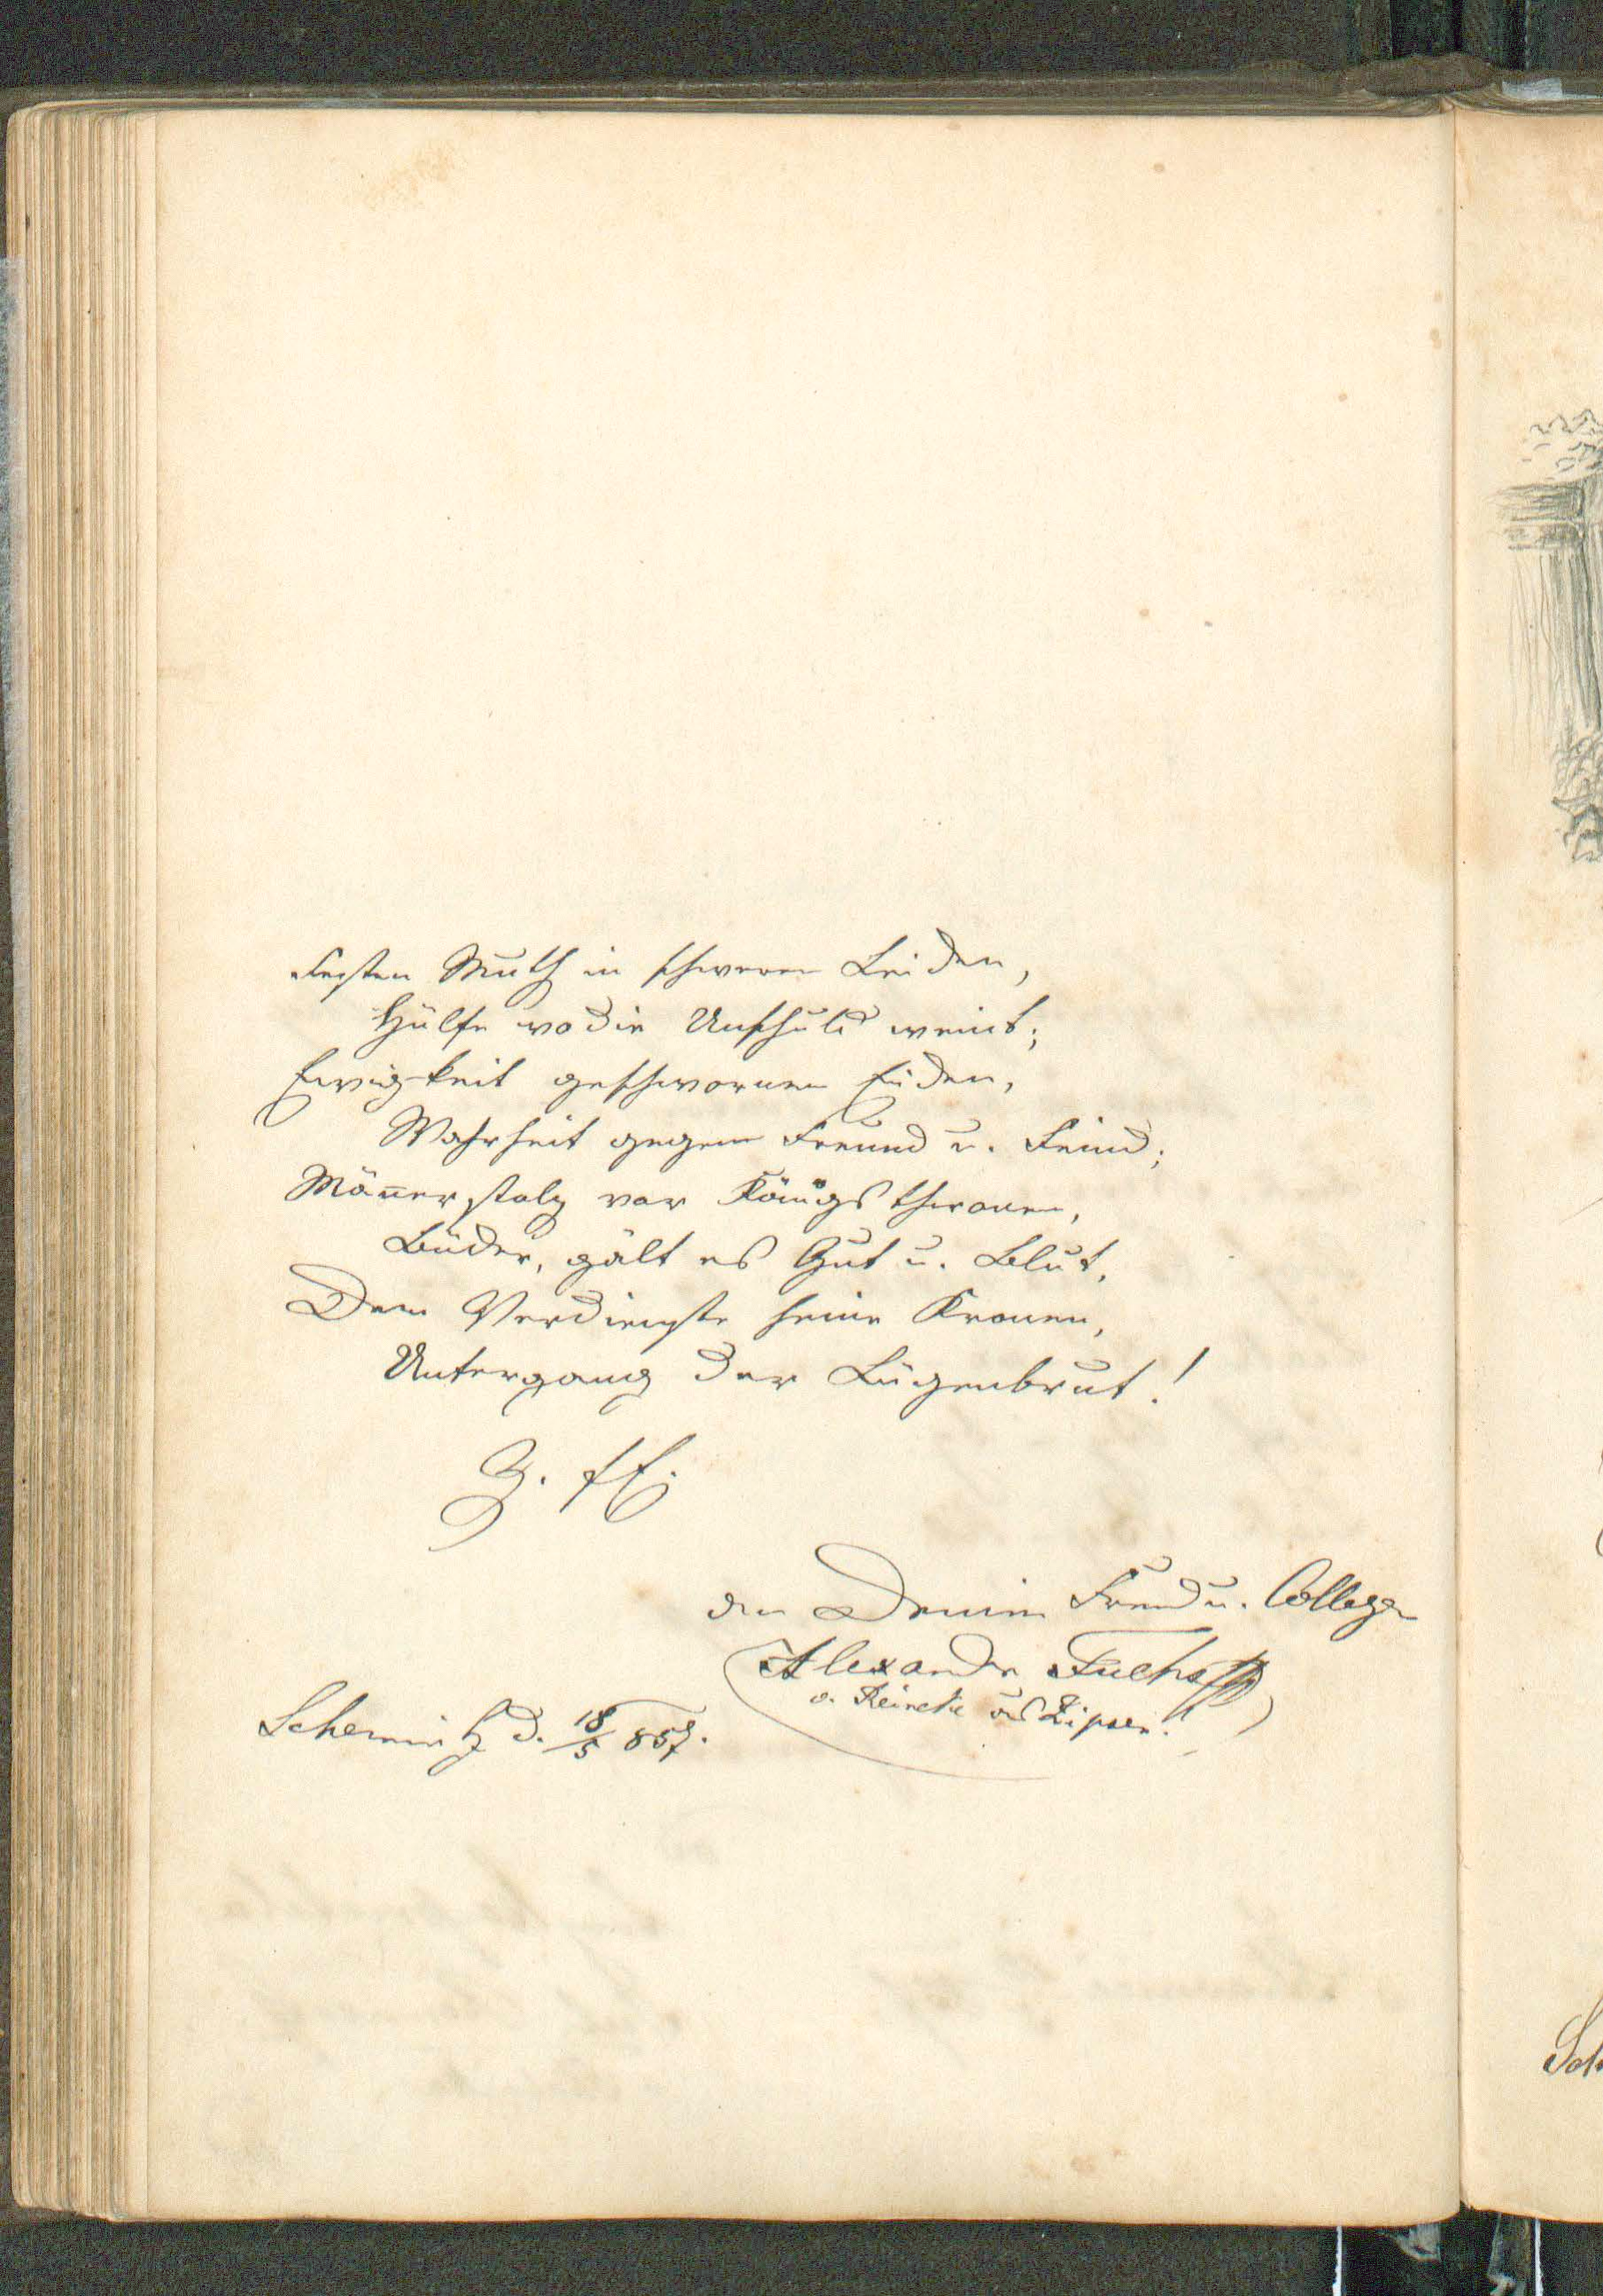 Festen Muth in schweren Leiden,
Hülfe wo die Unschuld weint;
Ewigkeit geschwornen Eiden,
Wahrheit gegen Freund u. Feind;
Männerstolz vor Königsthronen,
Brüder, gält es Gut u. Blut,
Dem Verdienste seine Kronen,
Untergang der Lügenbrut!
Z. fr. E.
an Deinen Freund u. Collegen
Alexander Fuchs
v. Reineke aus Zipsen.
Schemnitz d. 18/5 857.
Sch